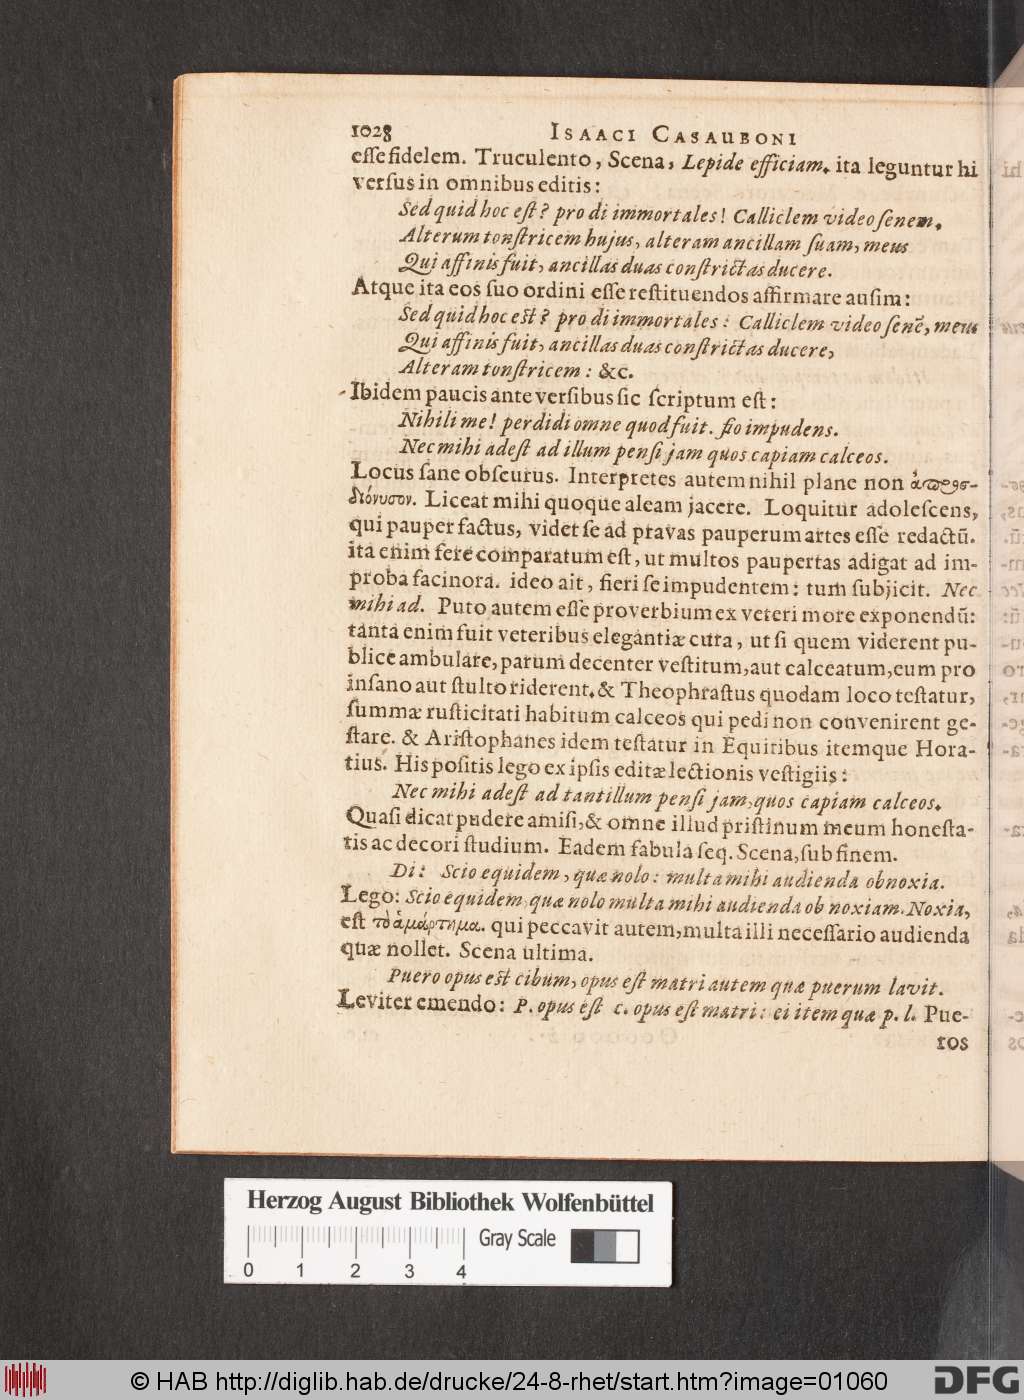 1028 ISAACI CASAUBONI
esse fidelem. Truculento, Scena, Lepide efficiam. ita leguntur hi
versus in omnibus editis:
Sed quid hoc est? pro di immortales! Calliclem video senem.
Alterum tonstricem hujus, alteram ancillam suam, meus
Qui affinis fuit, ancillas duas constrictas ducere.
Atque ita eos suo ordini esse restituendos affirmare ausim:
Sed quid hoc est? pro di immortales: Calliclem video senē, meus
Qui affinis fuit, ancillas duas constrictas ducere,
Alteram tonstricem: &c.
Ibidem paucis ante versibus sic scriptum est:
Nihili me! perdidi omne quod fuit. fio impudens.
Nec mihi adest ad illum pensi jam quos capiam calceos.
Locus sane obscurus. Interpretes autem nihil plane non ἀπροσ-
διόνυσον. Liceat mihi quoque aleam jacere. Loquitur adolescens,
qui pauper factus, videt se ad pravas pauperum artes esse redactū.
ita enim fere comparatum est, ut multos paupertas adigat ad im-
proba facinora. ideo ait, fieri se impudentem: tum subjicit. Nec
mihi ad. Puto autem esse proverbium ex veteri more exponendū:
tanta enim fuit veteribus elegantiæ cura, ut si quem viderent pu-
blice ambulare, parum decenter vestitum, aut calceatum, eum pro
insano aut stulto riderent. & Theophrastus quodam loco testatur,
summæ rusticitati habitum calceos qui pedi non convenirent ge-
stare. & Aristophanes idem testatur in Equitibus itemque Hora-
tius. His positis lego ex ipsis editæ lectionis vestigiis:
Nec mihi adest ad tantillum pensi jam, quos capiam calceos.
Quasi dicat pudere amisi, & omne illud pristinum meum honesta-
tis ac decori studium. Eadem fabula seq. Scena, sub finem.
Di: Scio equidem, quæ nolo: multa mihi audienda obnoxia.
Lego: Scio equidem, quæ nolo multa mihi audienda ob noxiam. Noxia,
est τὸ ἁμάρτημα. qui peccavit autem, multa illi necessario audienda
quæ nollet. Scena ultima.
Puero opus est cibum, opus est matri autem quæ puerum lavit.
Leviter emendo: P. opus est c. opus est matri: ei item quæ p. l. Pue-
ros
Herzog August Bibliothek Wolfenbüttel
Gray Scale
0 1 2 3 4
© HAB http://diglib.hab.de/drucke/24-8-rhet/start.htm?image=01060
DFG